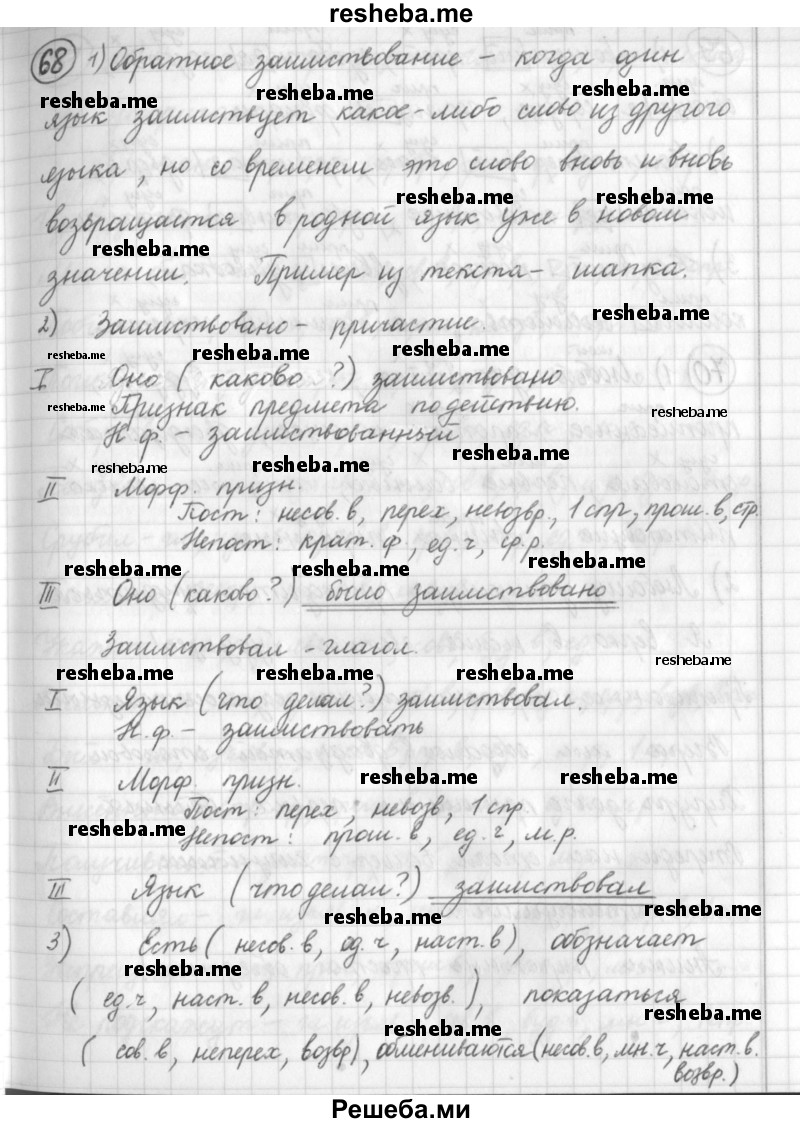 resheba.me
68 1) Обратное заимствование – когда один
resheba.me resheba.me resheba.me
язык заимствует какое-либо слово из другого
языка, но со временем это слово вновь и вновь
resheba.me resheba.me
возвращается в родной язык уже в новом
resheba.me
значении. Пример из текста – шапка.
resheba.me
2) Заимствовано – причастие.
resheba.me resheba.me resheba.me
I Оно (каково?) заимствовано
resheba.me Признак предмета по действию. resheba.me
Н.ф. – заимствованный
resheba.me resheba.me resheba.me
II Морф. призн.
Пост: несов.в, перех, невозвр., 1 спр, прош.в, стр.
Непост: крат.ф, ед.ч, ср.р.
resheba.me resheba.me resheba.me
III Оно (каково?) было заимствовано
Заимствовал – глагол.
resheba.me resheba.me resheba.me resheba.me
I Язык (что делал?) заимствовал.
Н.ф. – заимствовать
II Морф. призн. resheba.me resheba.me
Пост: перех, невозв, 1 спр.
resheba.me Непост: прош.в, ед.ч, м.р.
III Язык (что делал?) заимствовал
resheba.me resheba.me
3) Есть (несов.в, ед.ч, наст.в), обозначает
resheba.me resheba.me
(ед.ч, наст.в, несов.в, невозв.), показаться
resheba.me resheba.me
(сов.в, неперех, возвр), обмениваются (несов.в, мн.ч, наст.в.
возвр.)
Решеба.ми